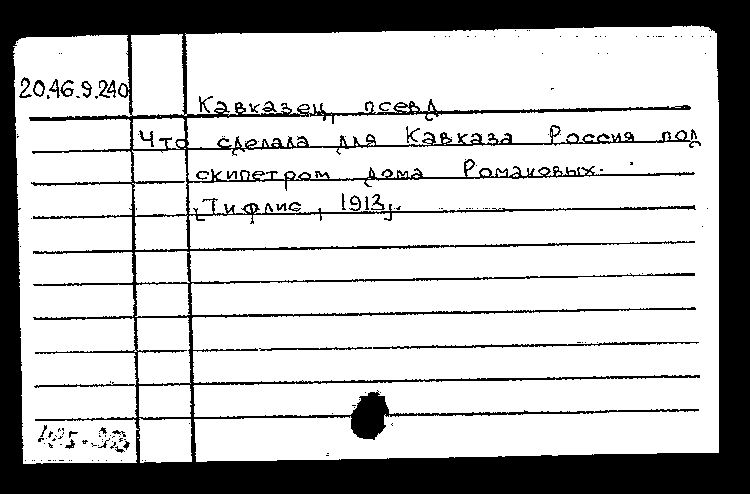 20.46.9.240
Кавказец, псевд
Что сделала для Кавказа Россия под
скипетром дома Романовых.
[Тифлис, 1913].